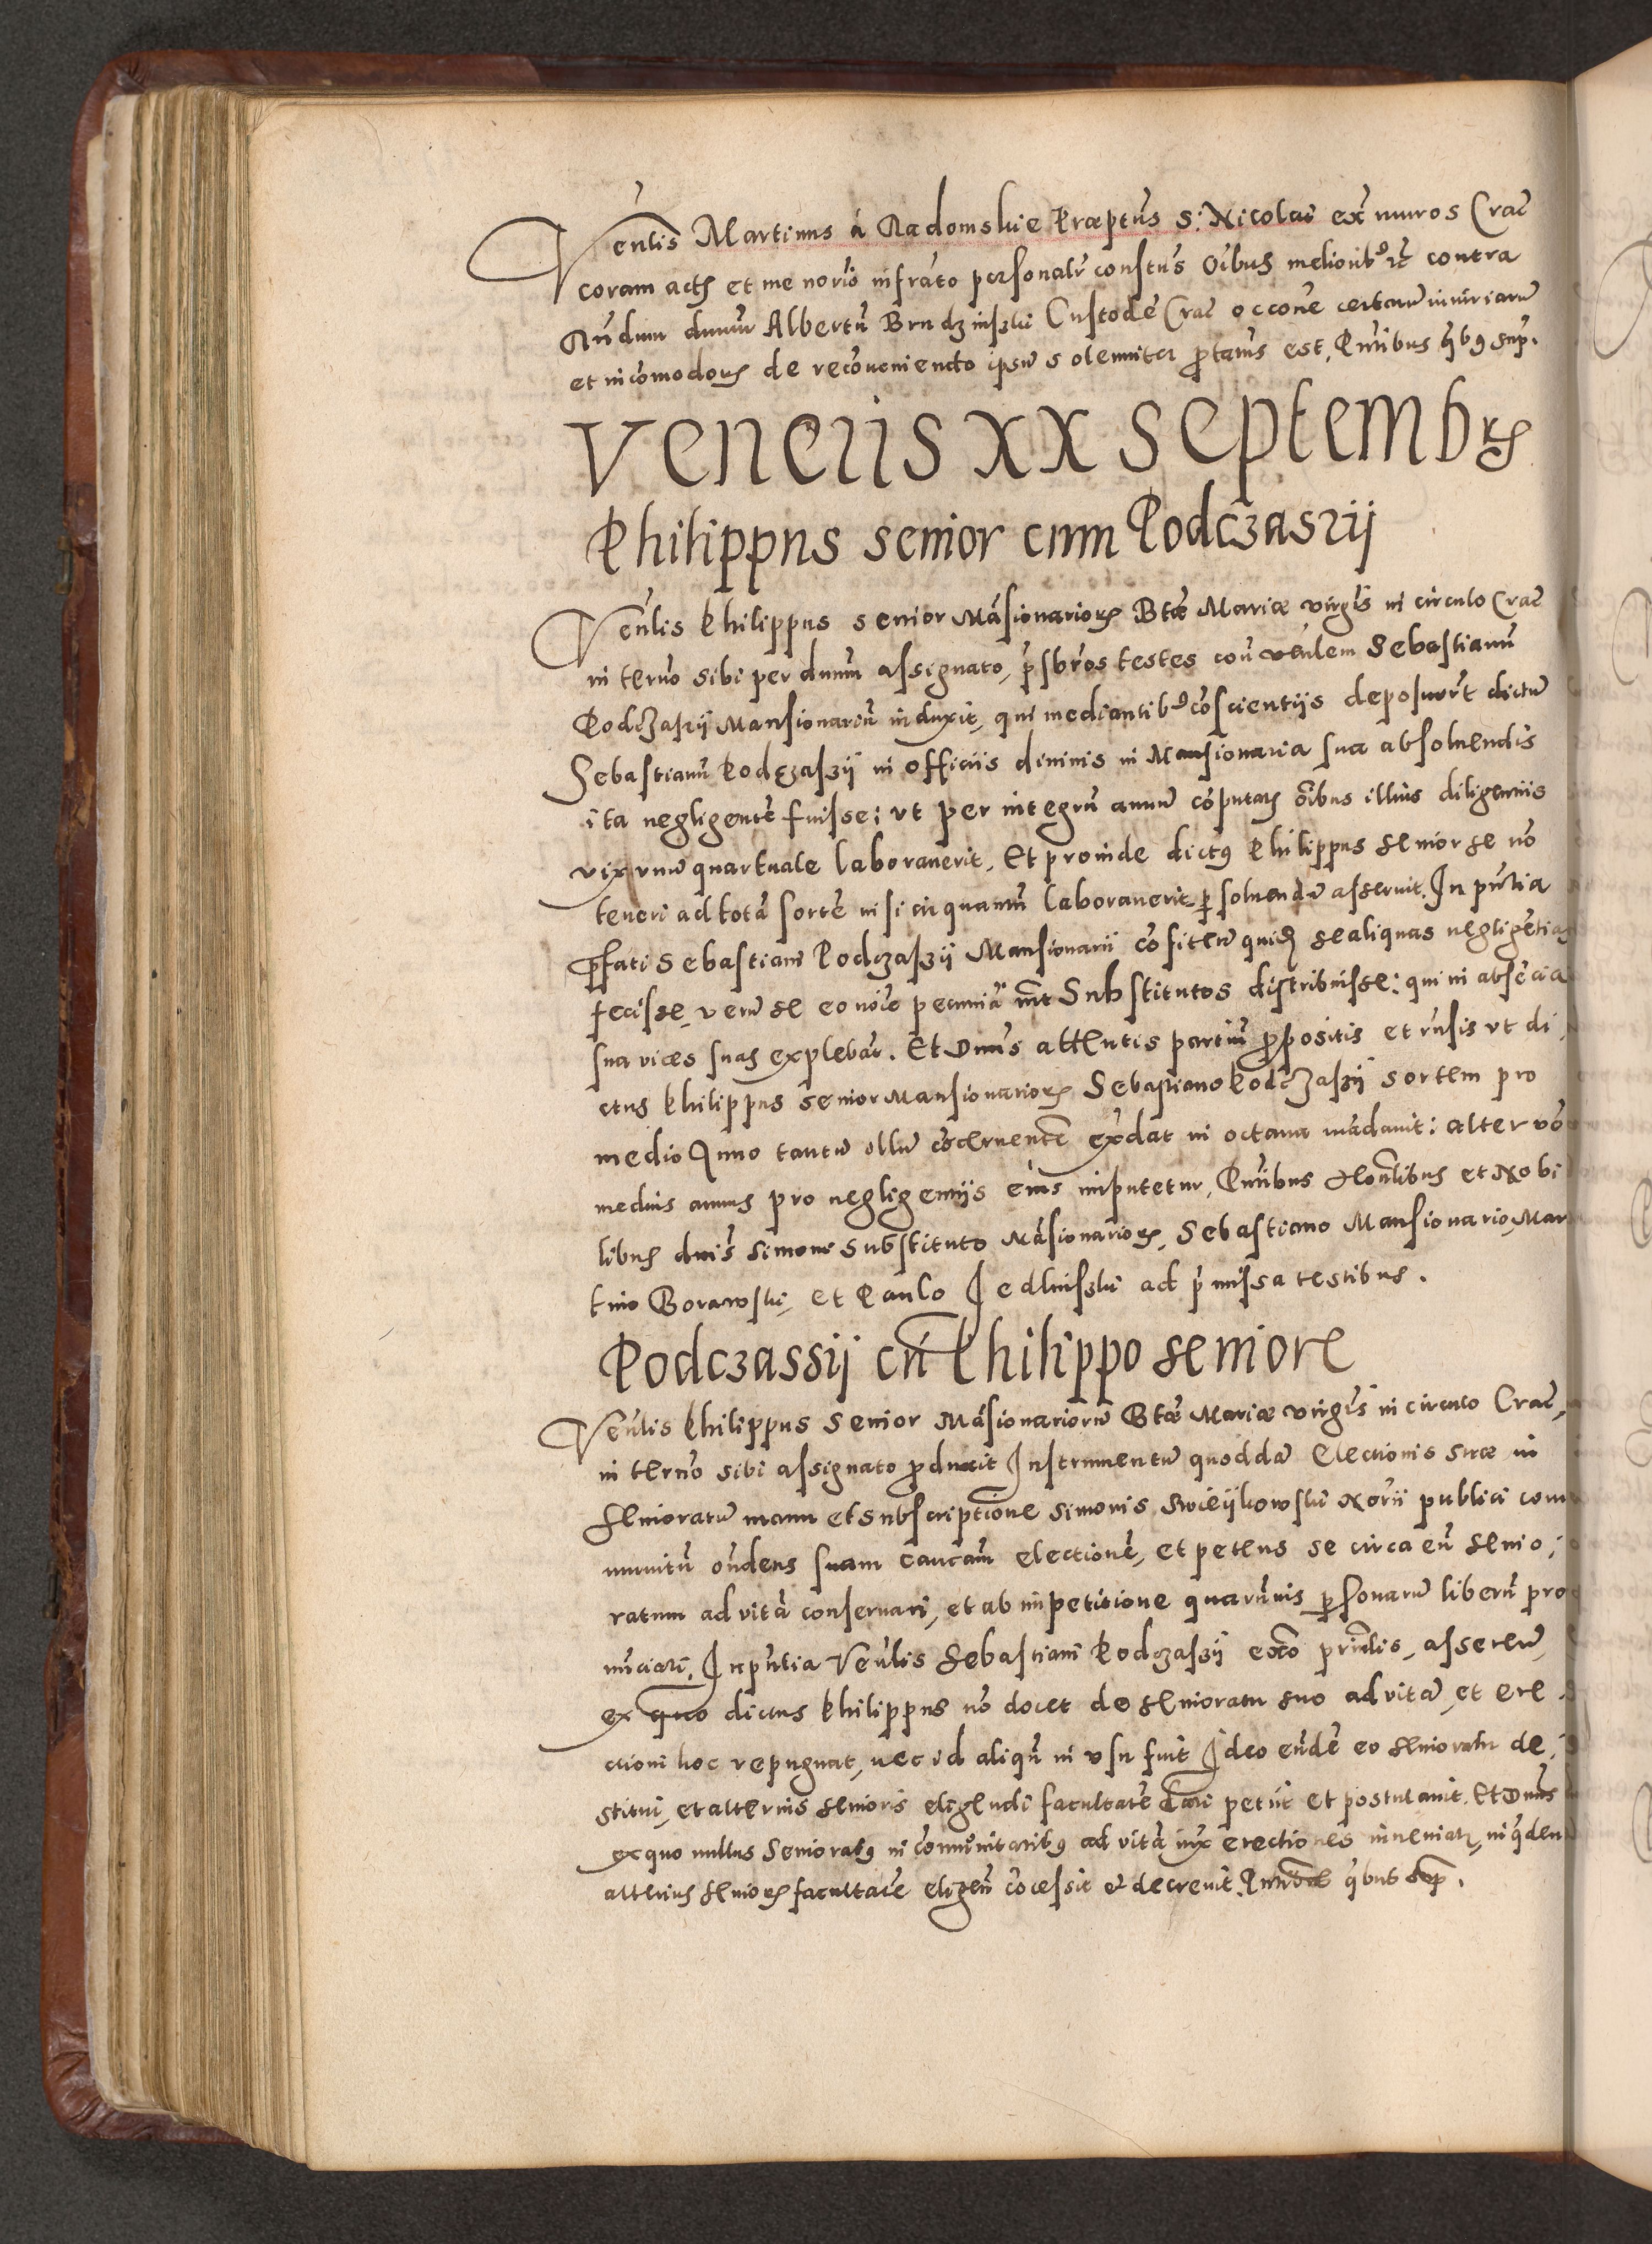 Venlis Martinus à Radomskie Præptus S: Nicolai ex muros Crac
coram actis et me norio infrato personalr constus Oibus melioribꝰ etc contra
Rndum dnum Albertu Brudzinski Custode Crac occone certaru iniuriaru
et incomodoru de reconueniendo ipsu solemniter protatus est, Pntibus qbus sup.
Veneris XX Septembris
Philippus senior cum Podczaszij
Venlis Philippus senior Mansionarioru Btæ Mariæ virgis in circulo Crac
in termo sibi per dnum assignato, prsbros testes con venlem Sebastianu
Podczaszij Mansionariu induxit, qui mediantibꝰ conscientijs deposuert dictu
Sebastianu Podczaszij in officijs diuinis in Mansionaria sua absoluendis
ita negligente fuisse: vt per integru annu computatis oibus illius diligentijs
vix vnu quartuale laborauerit, Et proinde dictus Philippus senior se no
teneri ad tota sorte nisi in quantu laborauerit persoluendu asseruit. In pntia
prfati Sebastiani Podczaszij Mansionarij cofitetur quide se aliquas negligetias
fecisse, veru se eo noie pecunia int Substitutos distribuisse: qui in absecia
sua vices suas explebat. Et Dnus attentis partiu propositis et rnsis vt di
ctus Philippus senior Mansionarioru Sebastiano Podczaszij sortem pro
medio Anno tantu illu cocernente exdat in octaua madauit: alter vo
medius annus pro negligentijs eius imputetur, Pntibus Honlibus et Nobi
libus dnis Simone Substituto Masionarioru, Sebastiano Mansionario, Mar
tino Borawski, et Paulo Jedlinski ad prmissa testibus.
Podczassij cu Philippo seniore
Venlis Philippus Senior Masionarioru Btæ Mariæ virgis in circulo Crac,
in termo sibi assignato produxit Instrumentu quodda Electionis suæ in
senioratu manu et subscriptione Simonis Swieijkowski Norij publici com
munitu ondens suam tantam electione, et petens se circa eu senio
ratum ad vita conseruari, et ab impetitione quaruuis personaru liberu pro
nuciari, In pntia Venlis Sebastiani Podczaszij exo prinlis, asseretu,
ex quo dictus Philippus no docet de senioratu suo ad vita, et ere
ctioni hoc repugnat, nec id aliqn in vsu fuit Ideo eude eo senioratu de
stitui, et alterius senioris eligendi facultate dari petijt et postulauit. Et Dnus
ex quo nullus Senioratus in comunitatibus ad vita iux erectiones inueniatur, in qdem
alterius senioris facultate eligen cocessit et decreuit. Pntibus qbus sup.